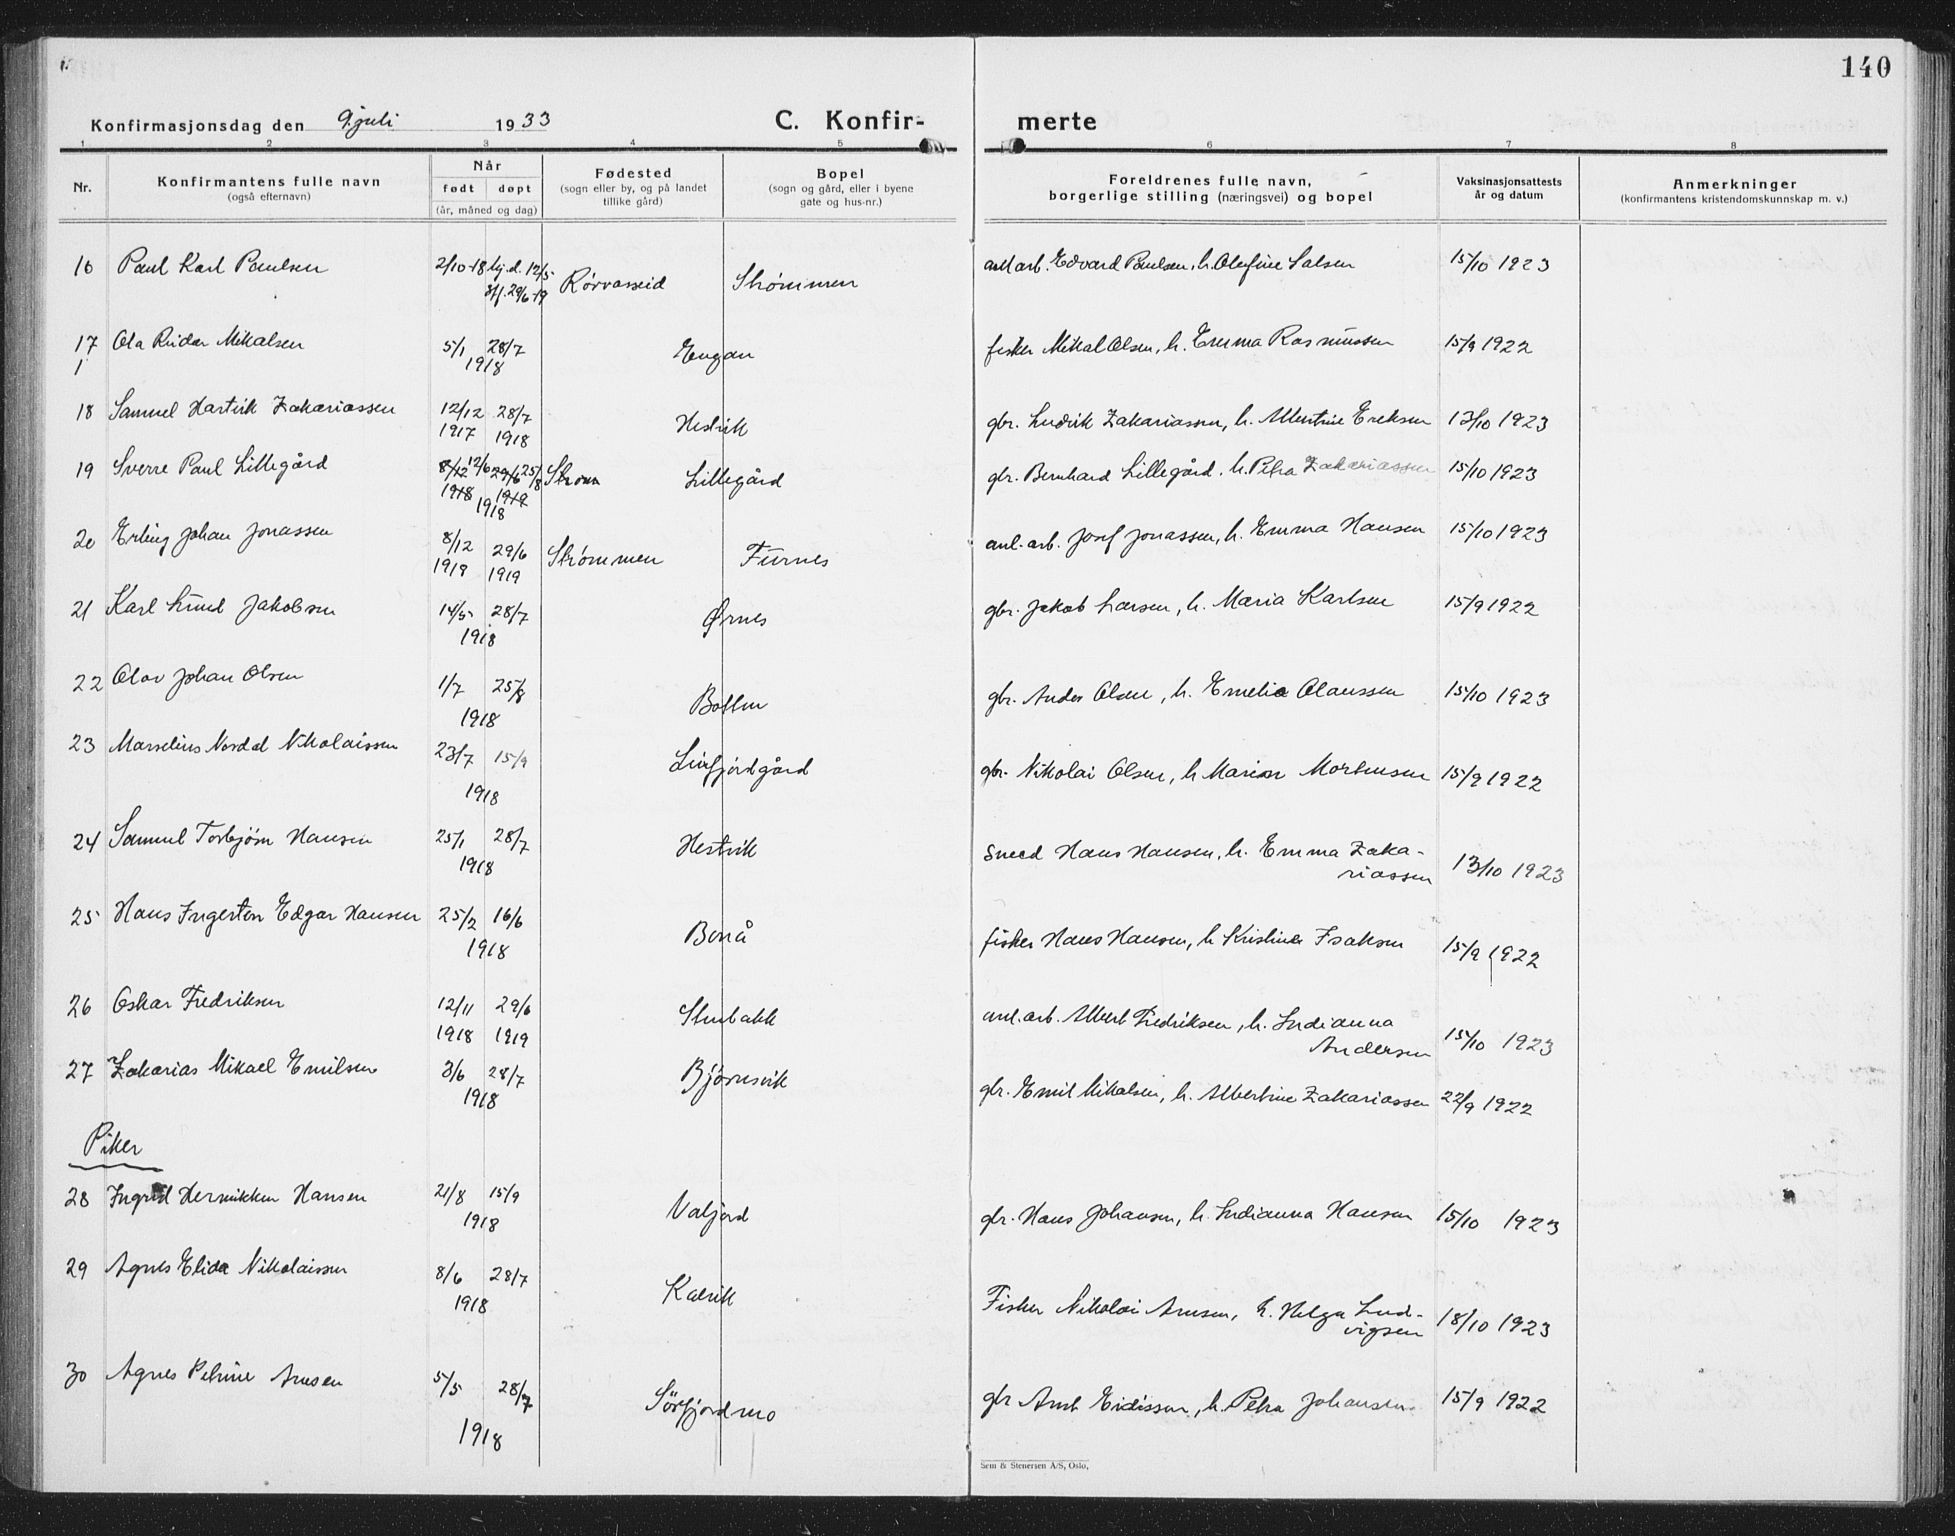 140
Konfirmasjonsdag den 9. juli 1933
C. Konfir- merte
1 2 3 4 5 6 7 8
Nr.
Konfirmantens fulle navn
(også efternavn)
Når
født døpt
(år, måned og dag)
Fødested
(sogn eller by, og på landet
tillike gård)
Bopel
(sogn og gård, eller i byene
gate og hus-nr.)
Foreldrenes fulle navn,
borgerlige stilling (næringsvei) og bopel
Vaksinasjonsattests
år og datum
Anmerkninger
(konfirmantens kristendomskunnskap m. v.)
16 Paul Karl Paulsen 2/10-18 hj.d. 12/5- 29/6-19 Rørvasseid Strømmen Edvard Paulsen, h. Olufine Salsen 15/10 1923
17 Ola Reidar Mikalsen 5/1 28/7 1918 Engan fisker Mikal Olsen, h. Emma Rasmussen 15/9 1922
18 Samuel Hartvik Zakariassen 12/12 1917 28/7 1918 Hestvik gbr. Ludvik Zakariassen, h. Albertine Eriksen 13/10 1923
19 Sverre Paul Lillegård 8/12 1918 12/6 29/6 1919 25/8 1918 Strøm Lillegård gbr. Bernhard Lillegård, h. Petra Zakariassen 15/10 1923
20 Erling Johan Jonassen 8/12 1918 29/6 1919 Strømmen Furnes anl. arb. Josef Jonassen, h. Emma Hansen 15/10 1923
21 Karl Lund Jakobsen 14/5- 28/7 1918 Ørnes gbr. Jakob Larsen, h. Maria Karlsen 15/9 1922
22 Olav Johan Olsen 1/7 25/8 1918 Botten gbr. Anders Olsen, h. Emelia Olaussen 15/10 1923
23 Marselius Nordal Nikolaissen 23/7 15/9 1918 gbr. Nikolai Olsen, h. Marion Mortensen 15/9 1922
24 Samuel Torbjørn Hansen 25/1 28/7 1918 Hestvik Smed Hans Hansen, h. Emma Zaka-
riassen 13/10 1923
25 Hans Ingerten Edgar Hansen 25/2 16/6 1918 Boså fisker Hans Hansen, h. Kristine Isaksen 15/9 1922
26 Oskar Fredriksen 12/11 1918 29/6 1919 Stenbakk anl. arb. Albert Fredriksen, h. Indianna
Andersen 15/10 1923
27 Zakarias Mikael Emilsen 3/6 28/7 1918 Bjørnsvik gbr. Emil Mikalsen, h. Albertine Zakariassen 22/9 1922
Piker
28 Ingrid Henrikken Hansen 21/8 15/9 1918 Valjord gbr. Hans Johansen, h. Indianna Hansen 15/10 1923
29 Agnes Elida Nikolaissen 8/6 28/7 1918 Kalvik Fisker Nikolai Arnsen, h. Helga Lud-
vigsen 18/10 1923
30 Agnes Petrine Arnsen 5/5 28/7 1918 Sørfjordmo gbr Arnt Eidissen, h. Petra Johansen 15/9 1922
Sem & Stenersen A/S, Oslo,